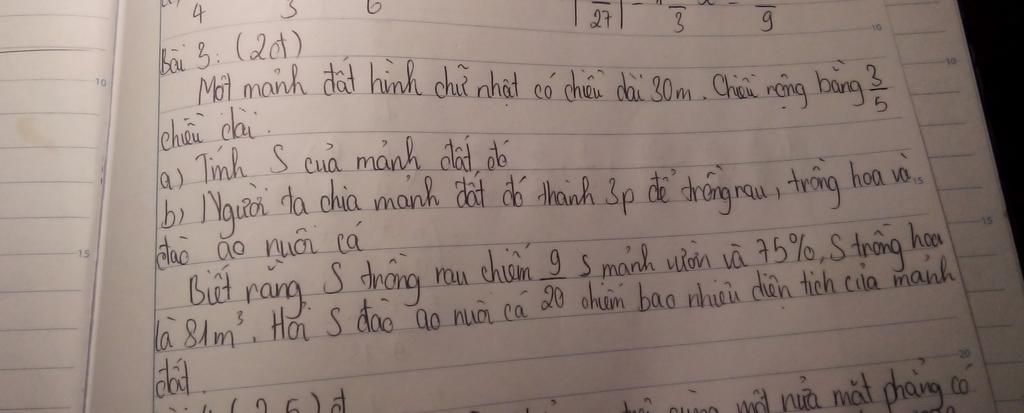 4 3 6 | 27 | - 3 9
Bài 3: (2đ)
Một mảnh đất hình chữ nhật có chiều dài 30m. Chiều rộng bằng 3/5
chiều dài.
a) Tính S của mảnh đất đó
b) Người ta chia mảnh đất đó thành 3p để trồng rau, trồng hoa và
đào ao nuôi cá
Biết rằng S trồng rau chiếm 9/20 S mảnh vườn và 75%, S trồng hoa
là 81m³. Hỏi S đào ao nuôi cá chiếm bao nhiêu diện tích của mảnh
đất.
(2,5)đ một nửa mặt phẳng có